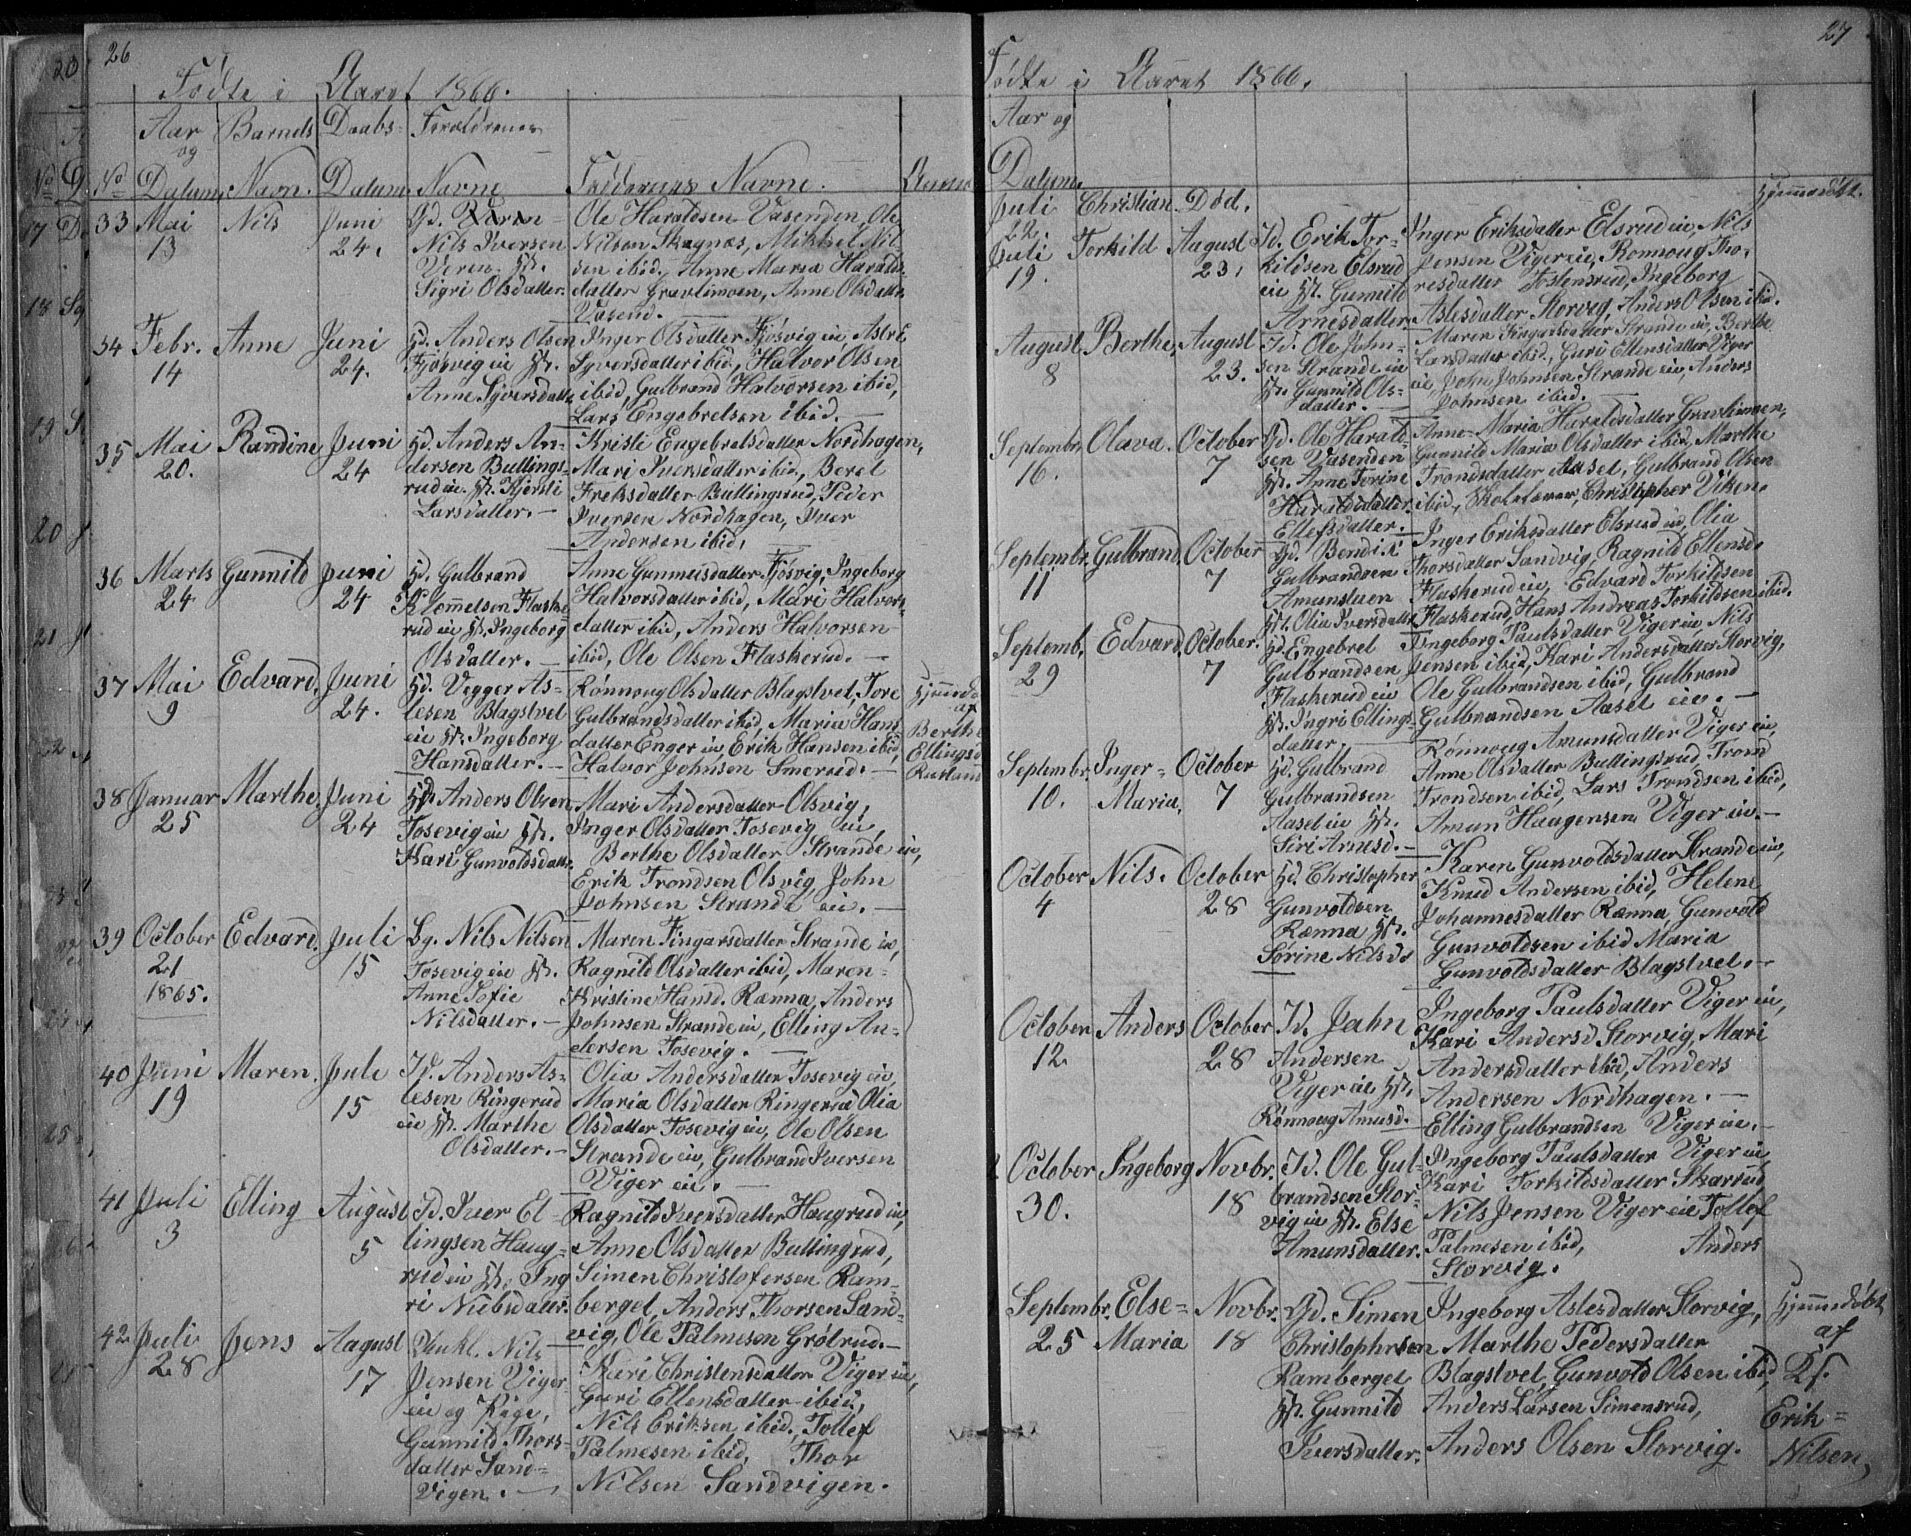 26
Fødte i Aaret 1866.
Aar og Barnets Daabs- Forældrenes
No Datum. Navn. Datum. Navne Faddernes Navne.
33 Mai 13 Nils Juni 24.
Gd.
Nils Iversen
Veren. H.
Sigri Olsdatter.
Ole Haraldsen Vasenden, Ole
Nilsen Skagnæs, Mikkel Nil-
sen ibid, Anne Maria Haralds-
datter Gravlimoen, Anne Olsdatter
Vasend.
34 Febr. 14 Anne Juni 24.
Hd. Anders Olsen
Fjøsvig eie H.
Anne Syversdatter
Inger Olsdatter Fjøsvig eie, Astri
Syversdatter ibid, Halvor Olsen
ibid, Gulbrand Halvorsen ibid,
Lars Engebretsen ibid.
35 Mai 20. Randine Juni 24
Hd. Anders An-
dersen Bullings-
rud eie. H. Kjersti
Larsdatter.
Kristi Engebretsdatter Nordhagen,
Mari Iversdatter ibid, Beret
Eriksdatter Bullingsrud, Peder
Iversen Nordhagen, Iver
Andersen ibid.
36 Marts 24 Gunnild Juni 24
Hd. Gulbrand
Klemmetsen Flaske-
rud eie H. Ingeborg
Olsdatter.
Anne Gunmeisdatter Fjøsvig, Ingeborg
Halvorsdatter ibid, Mari Halvors-
datter ibid, Anders Halvorsen
ibid, Ole Olsen Flaskerud.
37 Mai 9 Edvard. Juni 24.
Hd. Vegger As-
lesen Blagstvet
eie H. Ingeborg
Hansdatter.
Rønnoug Olsdatter Blagstvet, Tore
Gulbrandsdatter ibid, Maria Hans-
datter Enger eie, Erik Hansen ibid,
Halvor Johnsen Smerud.
af
Berthe
Ellingsd
38 Januar 25 Marthe, Juni 24
Hd. Anders Olsen
Tosevig eie H.
Kari Gunvoldsdatter.
Mari Andersdatter Olsvig,
Inger Olsdatter Tosevig eie,
Berthe Olsdatter Strande eie,
Erik Trondsen Olsvig, John
Johnsen Strande eie.
39 October 21 1865. Edvard. Juli 15
Lg. Nils Nilsen
Tosevig eie H.
Anne Sofie
Nilsdatter.
Maren Fingarsdatter Strande eie,
Ragnild Olsdatter ibid, Maren-
Kristine Hansd. Rænna, Anders
Johnsen Strande eie, Elling An-
dersen Tosevig.
40 Juni 19 Maren. Juli 15
Id. Anders As-
lesen Ringerud
eie H. Marthe
Olsdatter.
Olia Andersdatter Tosevig eie,
Maria Olsdatter Ringerud, Olia
Olsdatter Tosevig eie, Ole Olsen
Strande eie, Gulbrand Iversen
Viger eie.
41 Juli 3 Elling August 5
Id. Iver El-
lingsen Haug-
rud eie H. Ing-
ri Nielsdatter.
Ragnild Iversdatter Haugrud eie,
Anne Olsdatter Bullingrud,
Simen Christofersen Ram-
berget, Anders Thorsen Sand-
vig, Ole Palmesen Grøtrud.
42. Juli 28 Jens August 17
Unkl. Nils
Jensen Viger
eie og Pige,
Gunnild Thors-
datter Sand-
vigen.
Kari Christensdatter Viger eie,
Guri Ellensdatter ibid,
Nils Eriksen ibid, Tollef
Palmesen ibid, Thor
Nilsen Sandvigen.
27
Fødte i Aaret 1866.
Aar og
Datum.
Hjemmedøbt.
Juli 22. Christian. Død.
Juli 19. Torkild August 23.
Id. Erik Tor-
kildsen Elsrud
eie H. Gunnild
Arnesdatter.
Inger Eriksdatter Elsrud eie, Nils
Jensen Viger eie, Ronnoug Tho-
resdatter Tostensrud, Ingeborg
Aslesdatter Storvig, Anders Olsen ibid.
August 8 Berthe, August 23.
Id. Ole John-
sen Strande eie
H. Gunnild Ols-
datter.
Maren Fingarsdatter Strande eie, Berthe
Larsdatter ibid, Guri Ellensdatter Viger
eie, John Johnsen Strande eie, Anders
Johnsen ibid.
Septembr. 16. Olava. October 7
Gd. Ole Harald-
sen Vasenden
H. Anne Torine
Haraldsdatter.
Ellefsdatter.
Anne Maria Haraldsdatter Gravlimoen,
Gunnild Maria Olsdatter ibid, Marthe
Trondsdatter Aasel, Gulbrand Olsen
ibid, Skolelærer, Christopher Viken.
Septembr. 11 Gulbrand. October 7
Hd. Bendix
Gulbrandsen
Amunstuen
H. Olia Iversdatter
Inger Eriksdatter Elsrud eie, Olia
Thorsdatter Sandvig, Ragnild Ellensd.
Flaskerud eie, Edvard Torkildsen
Flaskerud, Hans Andreas Torkildsen ibid.
Septemb. 29 Edvard. October. 7
Hd. Engebret
Gulbrandsen
Flaskerud eie
H. Ingri Ellings-
datter.
Ingeborg Paulsdatter Viger eie, Nils
Jensen ibid, Kari Andersdatter Storvig,
Ole Gulbrandsen ibid, Gulbrand
Gulbrandsen Aasel eie.
Septembr. 10. Inger- Maria, October 7
Hd. Gulbrand
Gulbrandsen
Aasel eie H.
Siri Arnesd.
Rønnoug Amunsdatter Viger eie,
Anne Olsdatter Bullingsrud, Trond
Trondsen ibid, Lars Trondsen ibid,
Amun Haagensen Viger eie.
October 4 Nils. October 28
Hd. Christopher
Gunvoldsen
Rænna H.
Sørine Nilsd
Karen Gunvoldsdatter Strande eie,
Knud Andersen ibid, Helene
Johannesdatter Rænna, Gunvold
Gunvoldsen ibid Maria
Gunvoldsdatter Blagstvet.
October 12 Anders October 28
Id. Jahn
Andersen
Viger eie H.
Rønnoug Amusd.
Ingeborg Paulsdatter Viger eie,
Kari Andersd Storvig, Mari
Andersdatter ibid, Anders
Andersen Nordhagen.
Elling Gulbrandsen Viger eie.
October 30. Ingeborg Novbr. 18
Id. Ole Gul-
brandsen Stor-
vig eie H. Else
Amunsdatter.
Ingeborg Paulsdatter Viger eie,
Kari Torkildsdatter Skarrud
Nils Jensen Viger eie Tollef
Palmesen ibid, Anders
Storvig.
Septembr. 25 Else- Maria Novbr. 18
Gd. Simen
Christophersen
Ramberget
H. Gunnild
Iversdatter.
Ingeborg Aslesdatter Storvig,
Marthe Pedersdatter
Blagstvet, Gunvold Olsen ibid,
Anders Larsen Simensrud,
Anders Olsen Storvig.
Hjemmedøbt
af
Erik-
Nilsen,